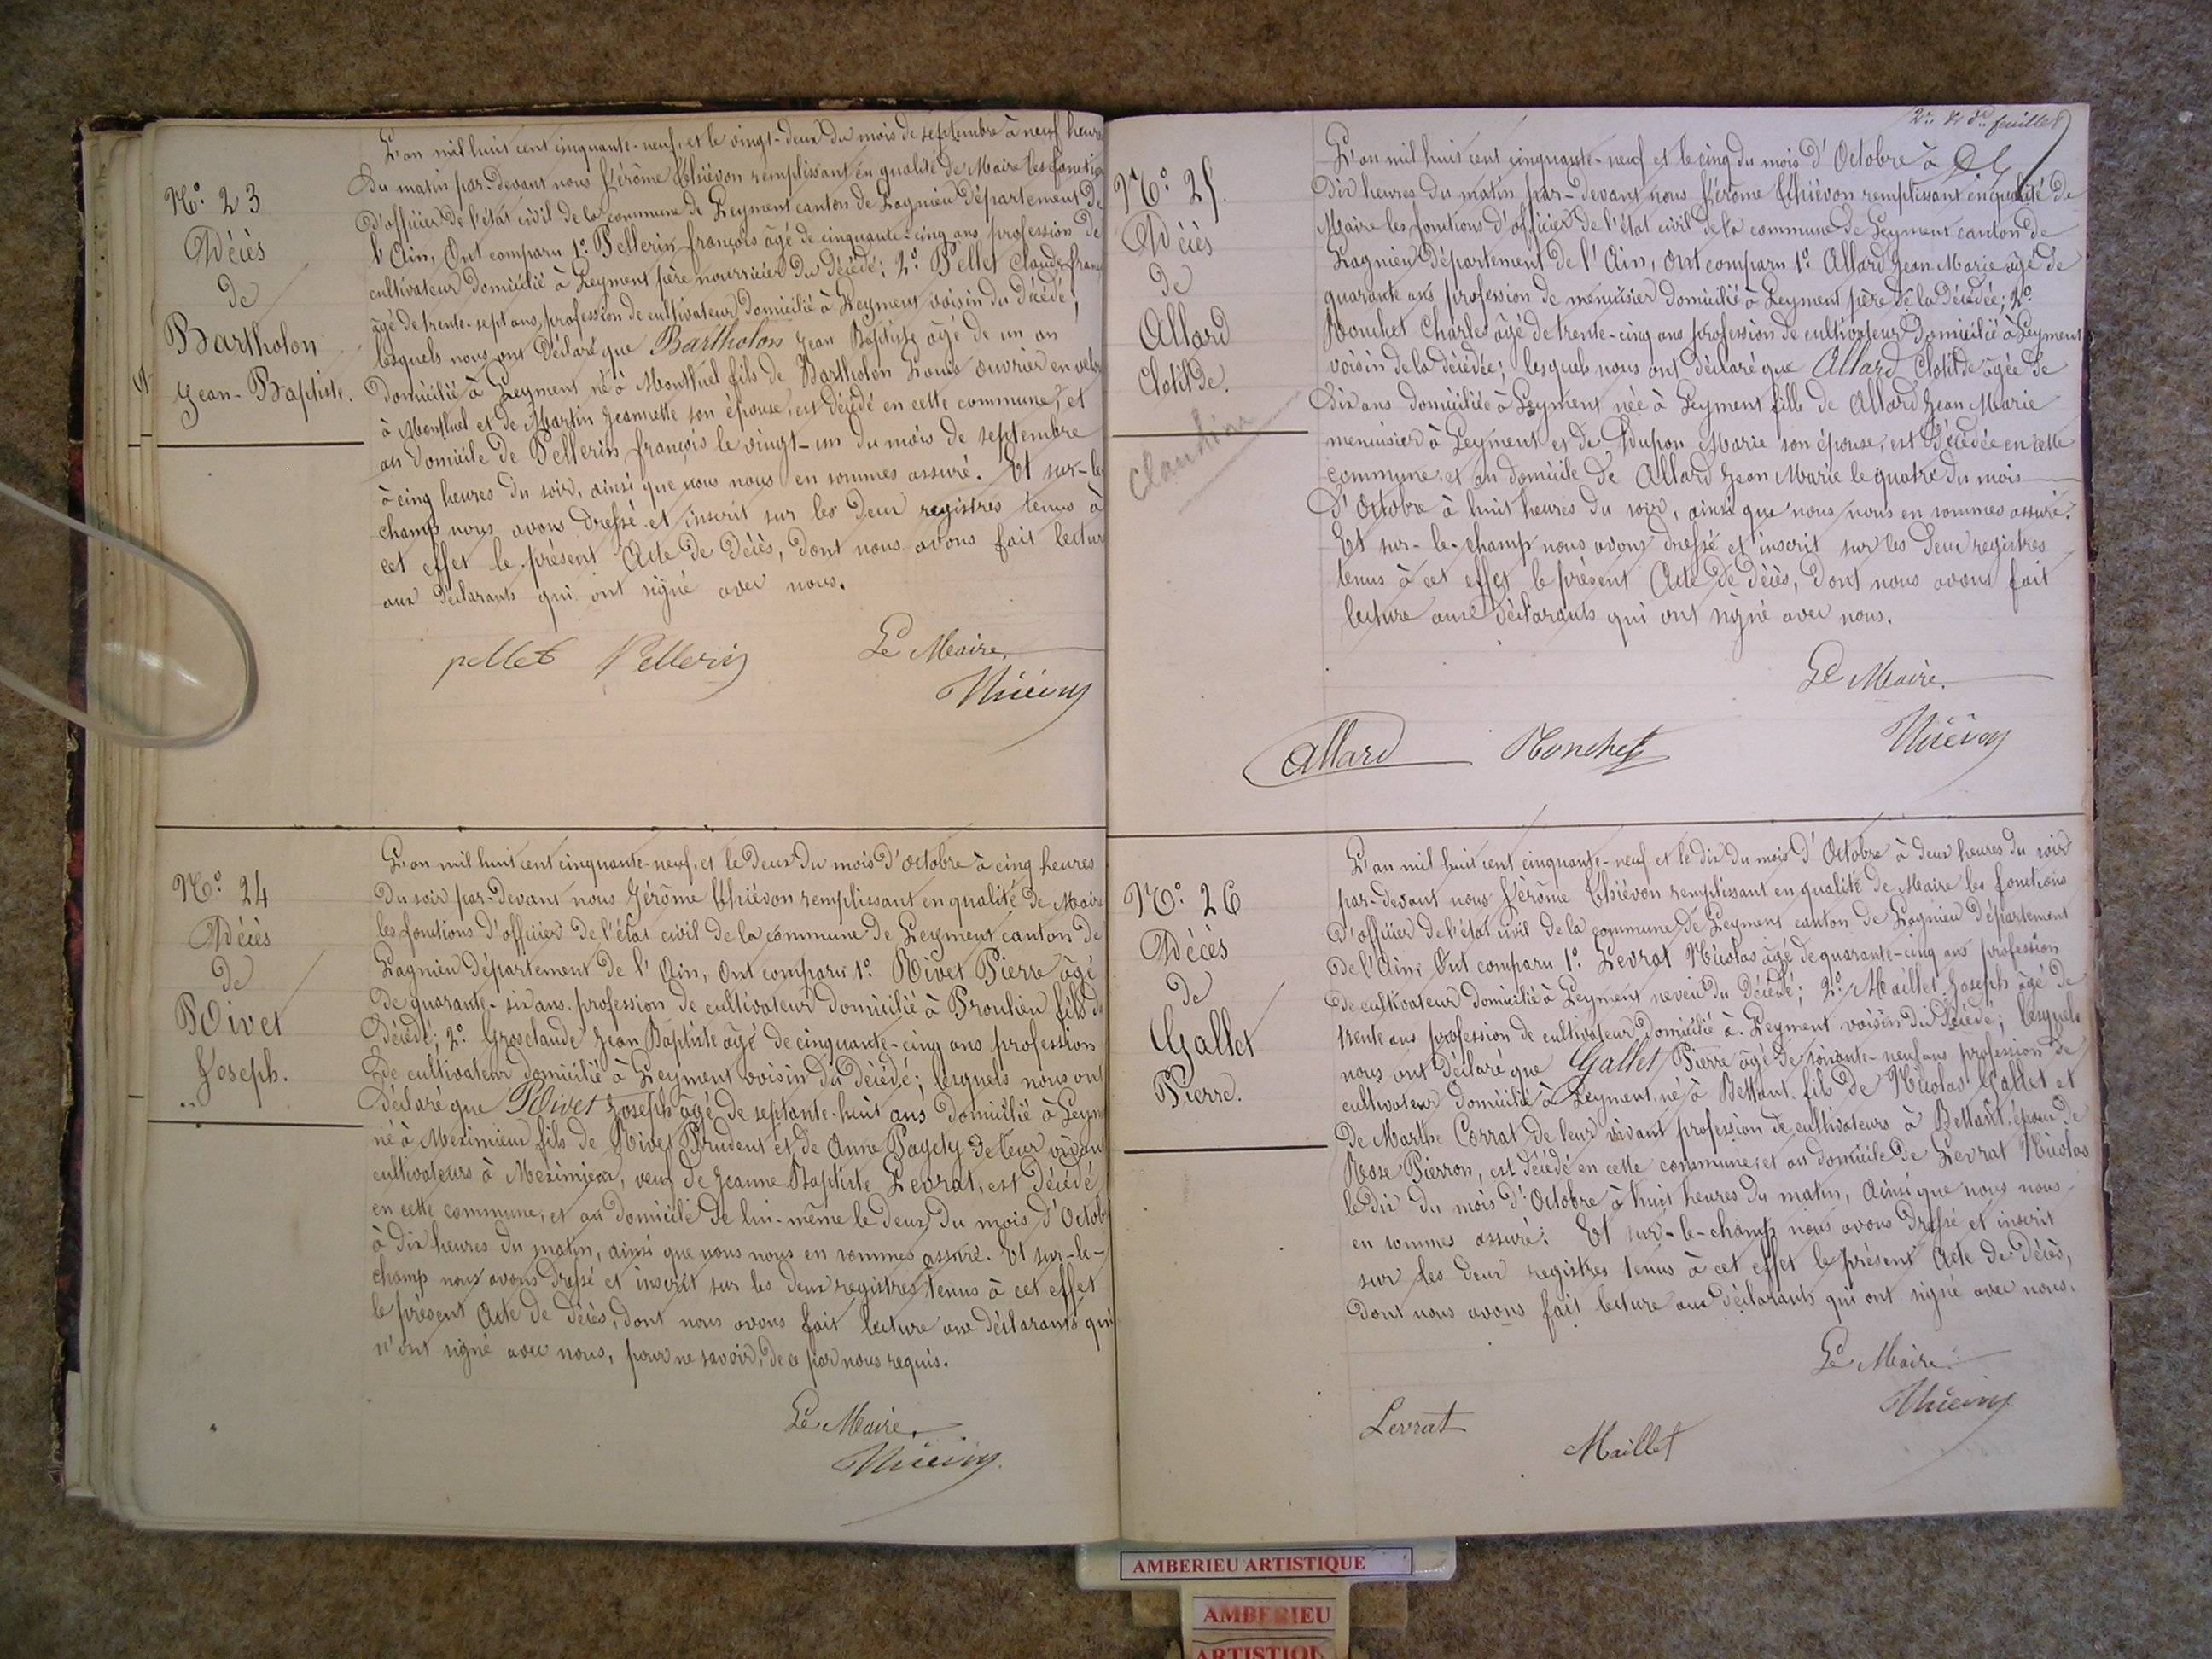 N.° 23
Décès
de
Bartholon
Jean-Baptiste.
L'an mil huit cent cinquante-neuf, et le vingt-deux du mois de septembre à neuf heures
du matin par-devant nous Jérôme Thiévon remplissant en qualité de Maire les fonctio
d'officier de l'état civil de la commune de Leyment canton de Lagnieu département de
l'Ain, Ont comparu 1.° Pellerin françois âgé de cinquante-cinq ans profession de
cultivateur domicilié à Leyment père nourricier du décédé; 2.° Pellet Claude franç
âgé de trente-sept ans, profession de cultivateur domicilié à Leyment voisin du décédé;
lesquels nous ont déclaré que Bartholon Jean Baptiste âgé de un an
domicilié à Leyment né à Montluel fils de Bartholon Louis ouvrier en velou
à Montluel et de Martin Jeannette son épouse, est décédé en cette commune, et
au domicile de Pellerin françois le vingt-un du mois de septembre
à cinq heures du soir, ainsi que nous nous en sommes assuré. Et sur-le
champ nous avons dressé et inscrit sur les deux registres tenus à
cet effet le présent Acte de Décès, dont nous avons fait lectur
aux déclarants qui ont signé avec nous.
pellet Pellerin Le Maire.
Thiévon
N.° 24
Décès
de
Rivet
Joseph.
L'an mil huit cent cinquante-neuf, et le deux du mois d'octobre à cinq heures
du soir par-devant nous Jérôme Thiévon remplissant en qualité de Maire
les fonctions d'officier de l'état civil de la commune de Leyment canton de
Lagnieu département de l'Ain, Ont comparu 1.° Rivet Pierre âgé
de quarante-six ans profession de cultivateur domicilié à Proulieu fils du
décédé; 2.° Grosclaude Jean Baptiste âgé de cinquante-cinq ans profession
de cultivateur domicilié à Leyment voisin du décédé; lesquels nous ont
déclaré que Rivet Joseph âgé de septante-huit ans domicilié à Leym
né à Meximieux fils de Rivet Prudent et de Anne Pagety de leur vivant
cultivateurs à Meximieux, veuf de Jeanne Baptiste Levrat, est décédé
en cette commune, et au domicile de lui-même le deux du mois d'Octob
à dix heures du matin, ainsi que nous nous en sommes assuré. Et sur-le-
champ nous avons dressé et inscrit sur les deux registres tenus à cet effet
le présent Acte de Décès, dont nous avons fait lecture aux déclarants qui
n'ont signé avec nous, pour ne savoir, de ce par nous requis.
Le Maire.
Thiévon
2.e et d.er feuillet
N.° 25.
Décès
de
Allard
Clotilde.
Claudine
L'an mil huit cent cinquante-neuf et le cinq du mois d'Octobre à
dix heures du matin par-devant nous Jérôme Thiévon remplissant en qualité de
Maire les fonctions d'officier de l'état civil de la commune de Leyment canton de
Lagnieu département de l'Ain, Ont comparu 1.° Allard Jean Marie âgé de
quarante ans profession de menuisier domicilié à Leyment père de la décédée; 2.°
Ronchet Charles âgé de trente-cinq ans profession de cultivateur domicilié à Leyment
voisin de la décédée; lesquels nous ont déclaré que Allard Clotilde âgée de
dix ans domiciliée à Leyment née à Leyment fille de Allard Jean Marie
menuisier à Leyment et de Dupon Marie son épouse, est décédée en cette
commune, et au domicile de Allard Jean Marie le quatre du mois
d'Octobre à huit heures du soir, ainsi que nous nous en sommes assuré.
Et sur-le-champ nous avons dressé et inscrit sur les deux registres
tenus à cet effet le présent Acte de Décès, dont nous avons fait
lecture aux déclarants qui ont signé avec nous.
Le Maire.
Allard Ronchet Thiévon
N.° 26
Décès
de
Gallet
Pierre.
L'an mil huit cent cinquante-neuf et le dix du mois d'Octobre à deux heures du soir
par-devant nous Jérôme Thiévon remplissant en qualité de Maire les fonctions
d'officier de l'état civil de la commune de Leyment canton de Lagnieu département
de l'Ain, Ont comparu 1.° Levrat Nicolas âgé de quarante-cinq ans profession
de cultivateur domicilié à Leyment neveu du décédé; 2.° Maillet Joseph âgé de
trente ans profession de cultivateur domicilié à Leyment voisin du décédé; lesquels
nous ont déclaré que Gallet Pierre âgé de soixante-neuf ans profession de
cultivateur domicilié à Leyment, né à Bettant, fils de Nicolas Gallet et
de Marthe Corrat de leur vivant profession de cultivateurs à Bettant, époux de
Rose Pierron, est décédé en cette commune, et au domicile de Levrat Nicolas
le dix du mois d'Octobre à huit heures du matin, Ainsi que nous nous
en sommes assuré. Et sur-le-champ nous avons dressé et inscrit
sur les deux registres tenus à cet effet le présent Acte de Décès,
dont nous avons fait lecture aux déclarants qui ont signé avec nous.
Le Maire.
Levrat Maillet Thiévon
AMBERIEU ARTISTIQUE
AMBERIEU
ARTISTIQU